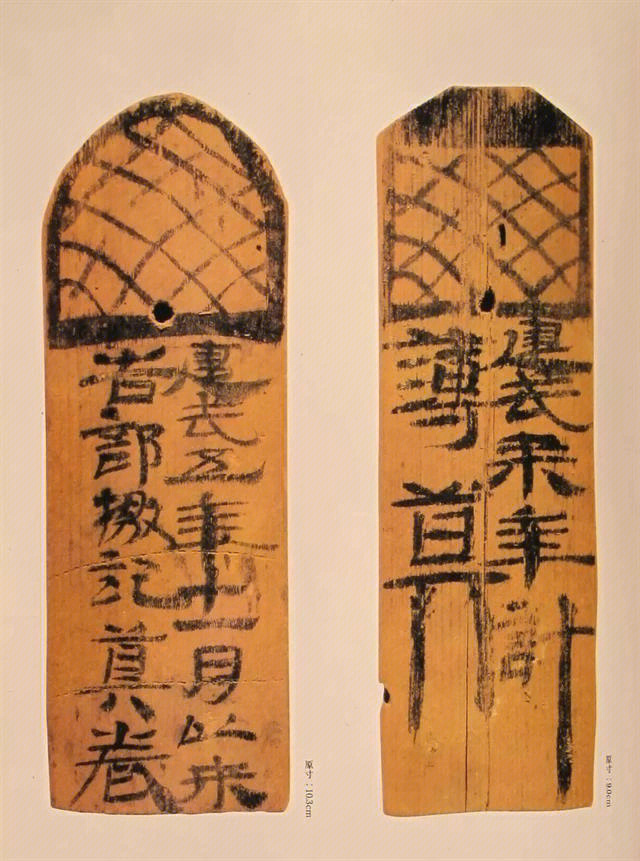 建武桼年計
簿算
原寸：9.0cm
建武五年十一月以來
告部檄記算卷
原寸：10.3cm